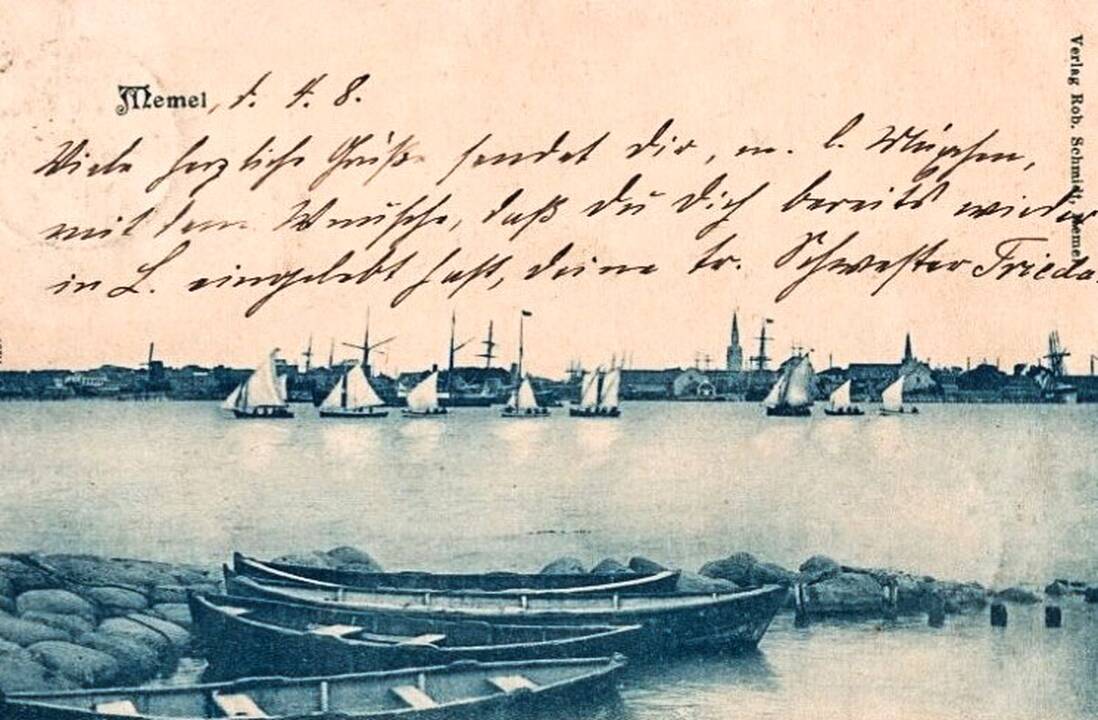 Memel, d. 4. 8.
Viele herzliche Grüße sendet Dir, m. l.
mit dem Wunsche, daß Du Dich bereits wieder
in L. eingelebt hast, deine tr. Schwester Frieda.
Verlag Rob. Schmidt, Memel